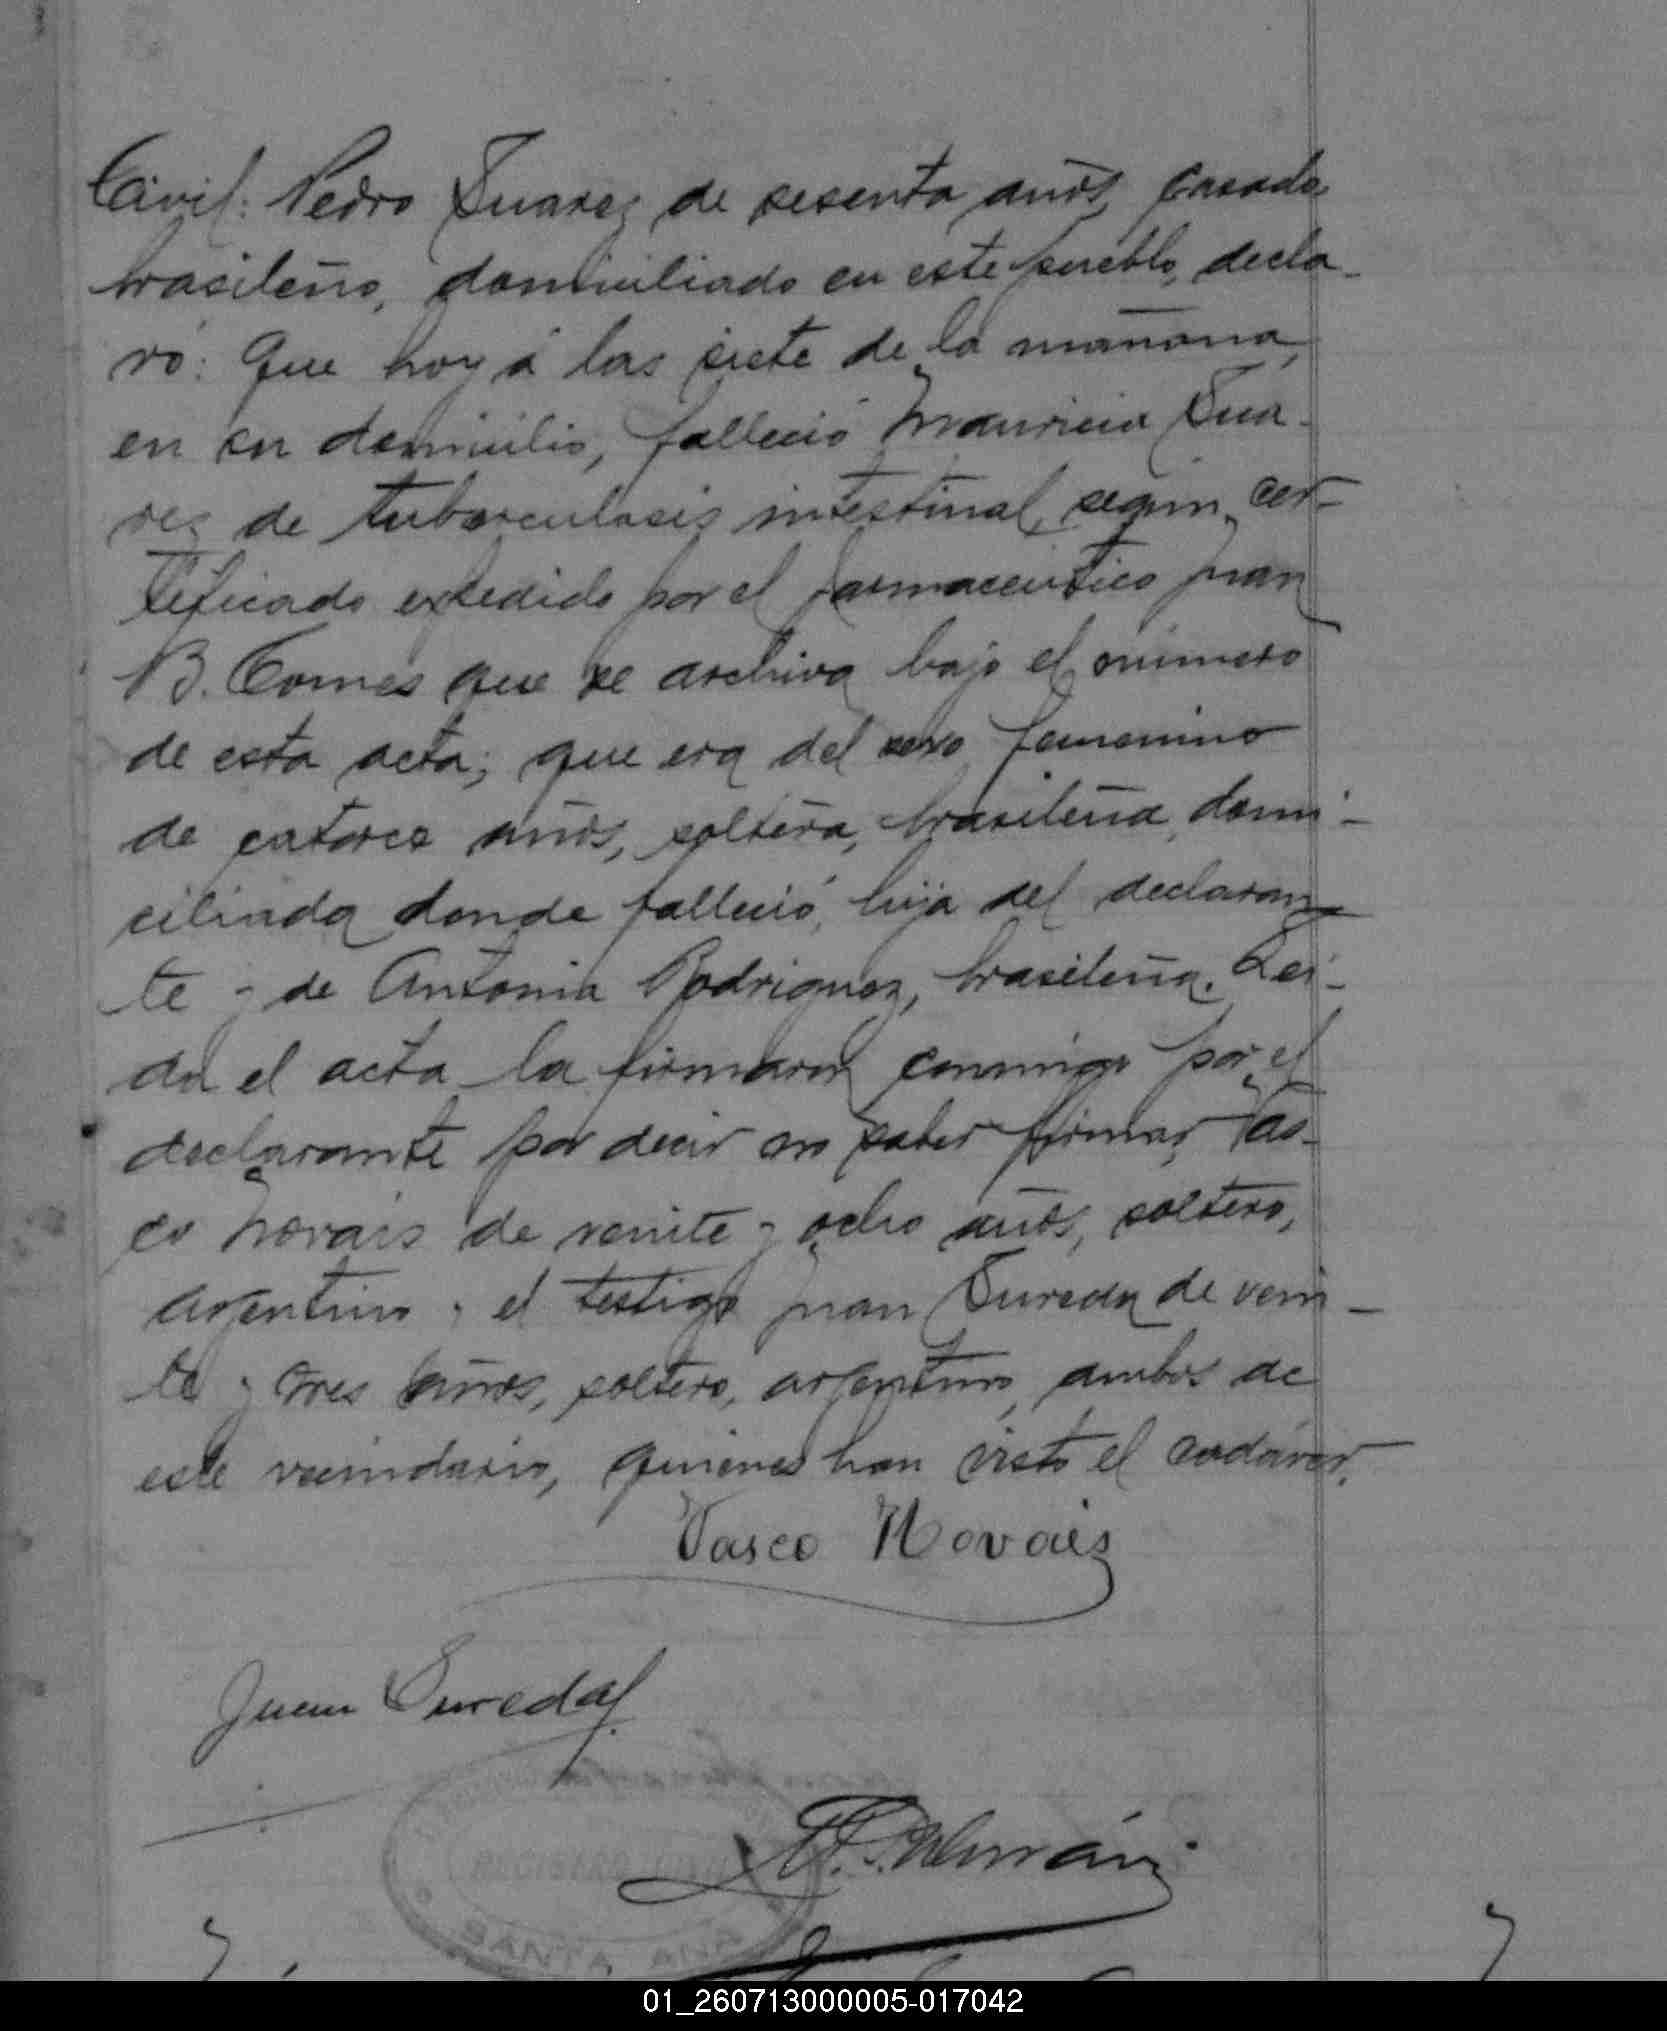 Civil: Pedro Suarez de sesenta años, casado
brasileño, domiciliado en este pueblo, decla-
ró: Que hoy á las siete de la mañana,
en su domicilio, falleció Mauricia Sua-
res de tuberculosis intestinal, segun cer-
tificado expedido por el farmaceutico Juan
B. Comes que se archiva bajo el número
de esta acta; que era del sexo femenino
de catorce años, soltera, brasileña, domi-
ciliada donde falleció, hija del declaran-
te y de Antonia Rodriguez, brasileña. Lei-
da el acta la firmaron conmigo por el
declarante por decir no saber firmar, Vas-
co Novais de veinte y ocho años, soltero,
argentino y el testigo Juan Sureda de vein-
te y tres años, soltero, argentino, ambos de
este vecindario, quienes han visto el cadáver.
Vasco Novais
Juan Sureda
01_260713000005-017042